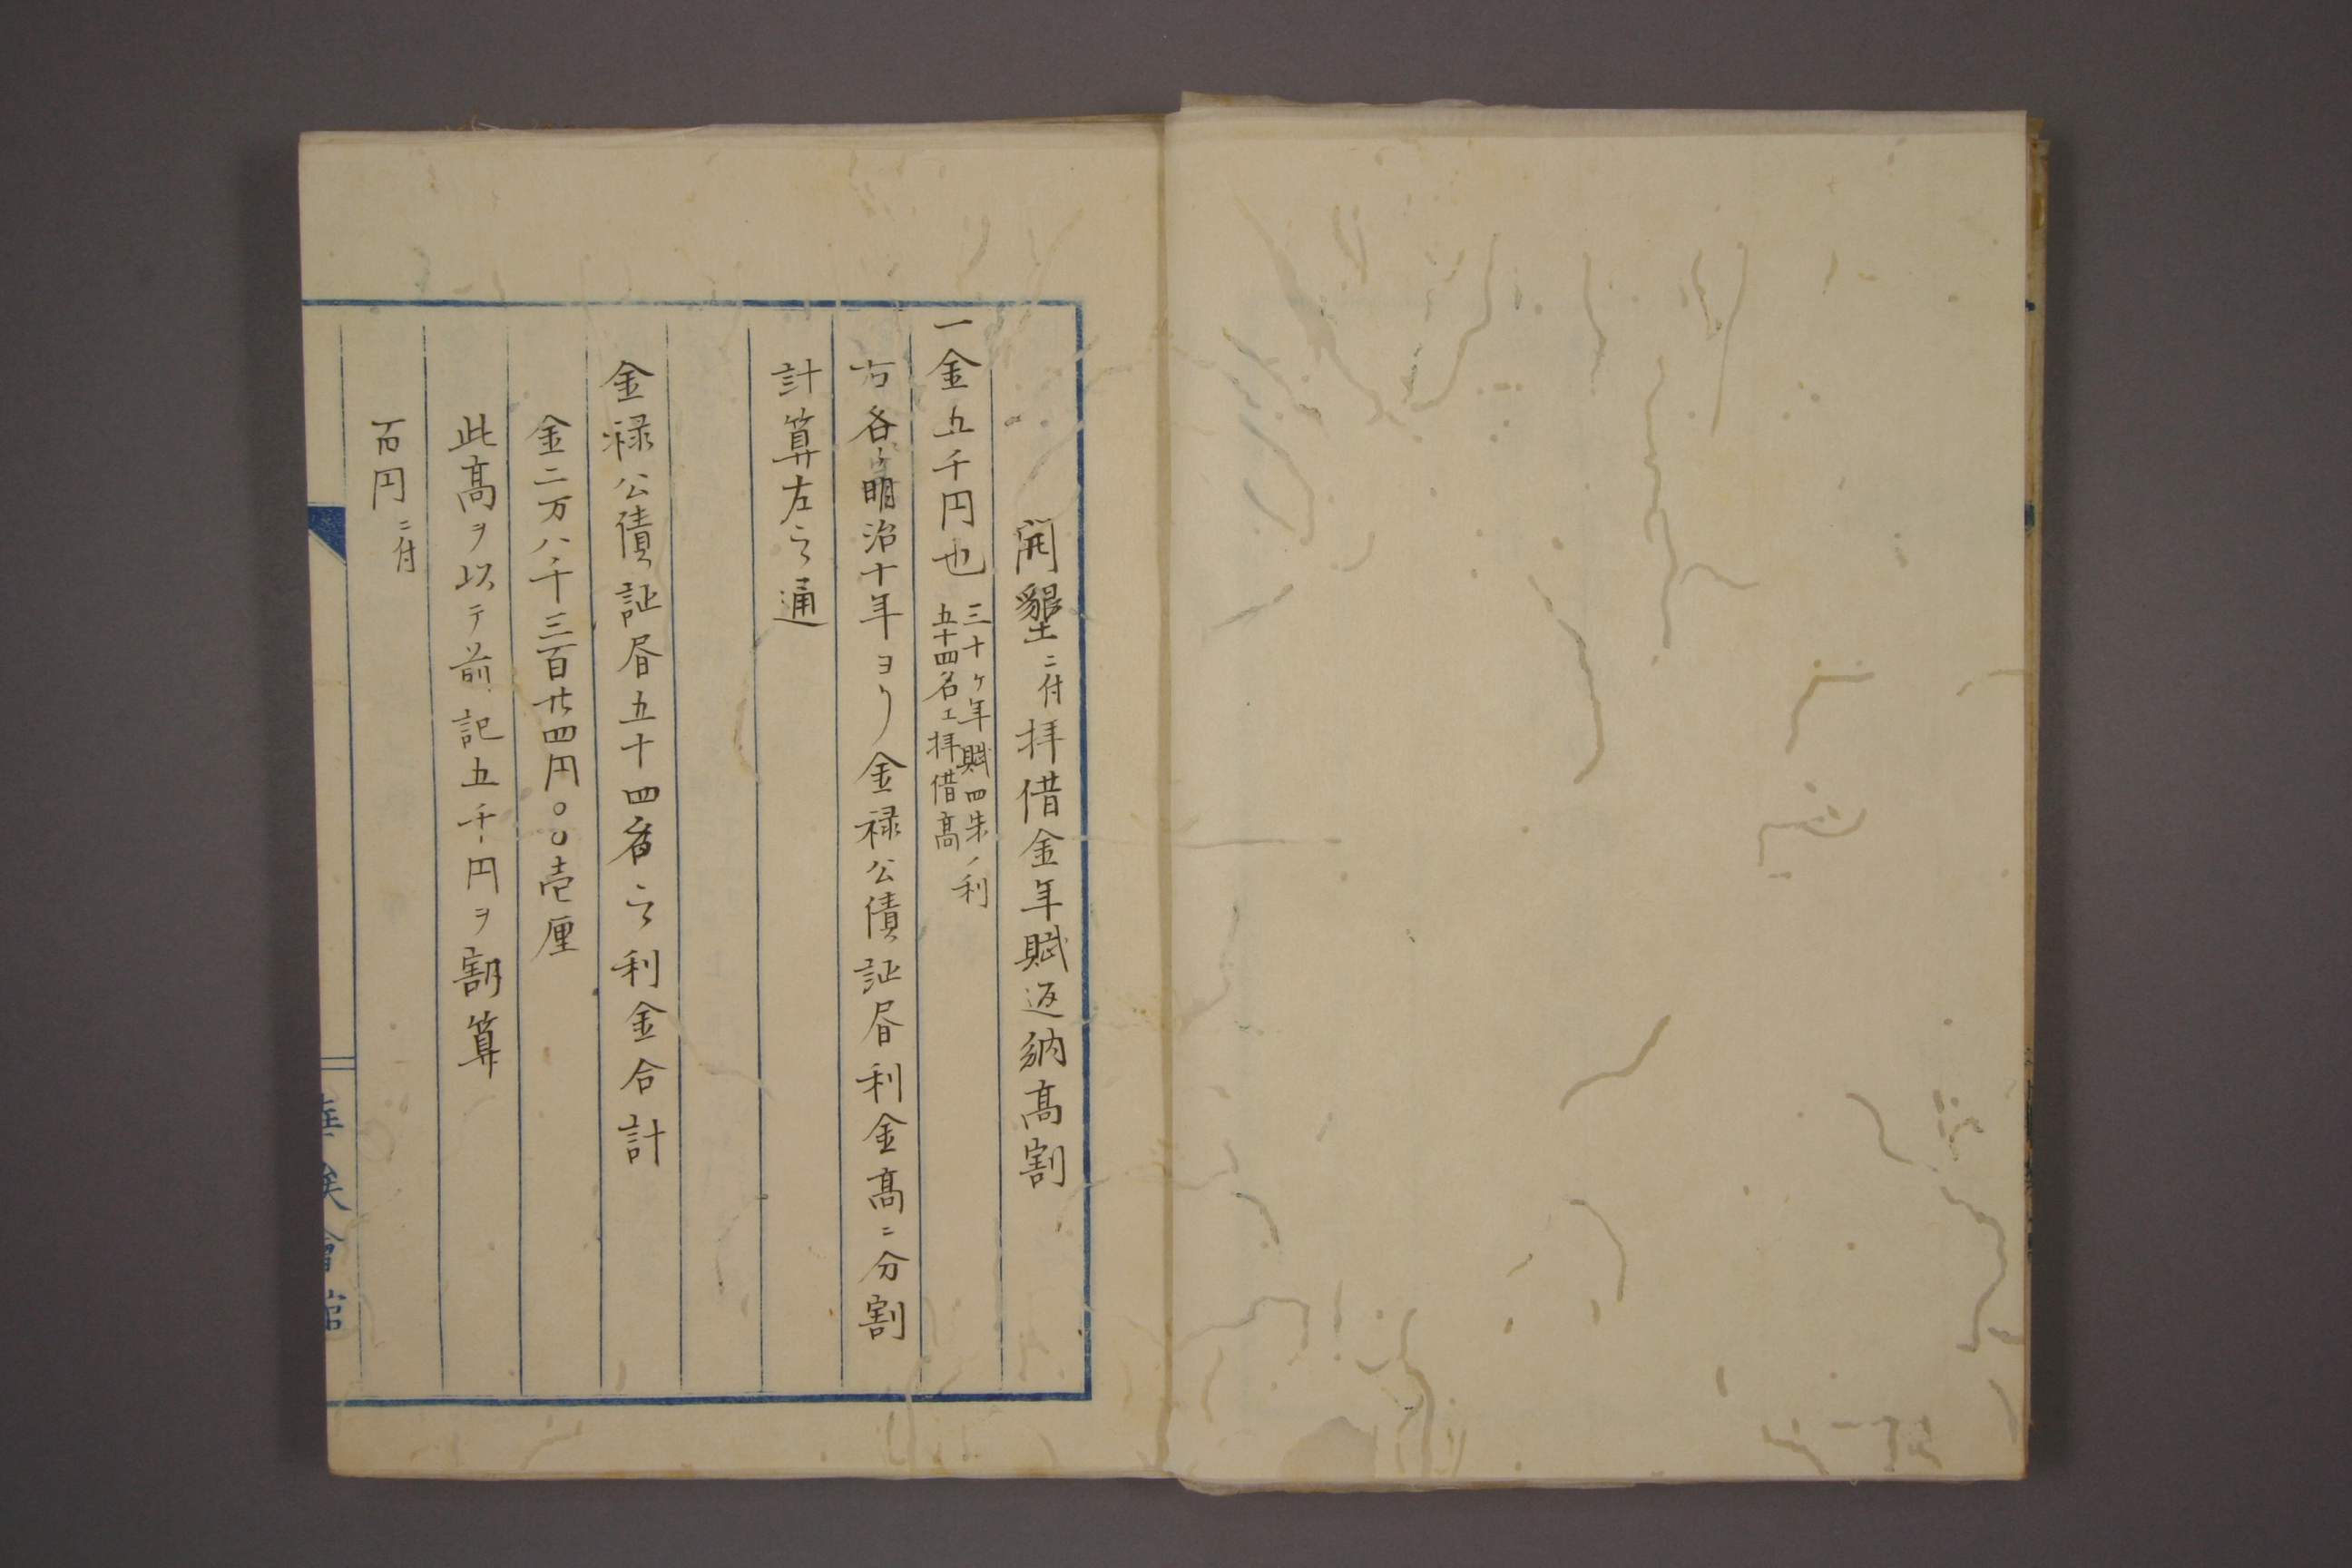 開墾ニ付拝借金年賦返納高割
一金五千円也
三十ヶ年賦四朱ノ利
五十四名エ拝借高
右各々明治十年ヨリ金禄公債証昏利金高ニ分割
計算左之通
金禄公債証昏五十四番之利金合計
金二万八千三百廿四円〇〇壱厘
此高ヲ以テ前記五千円ヲ割算
百円ニ付